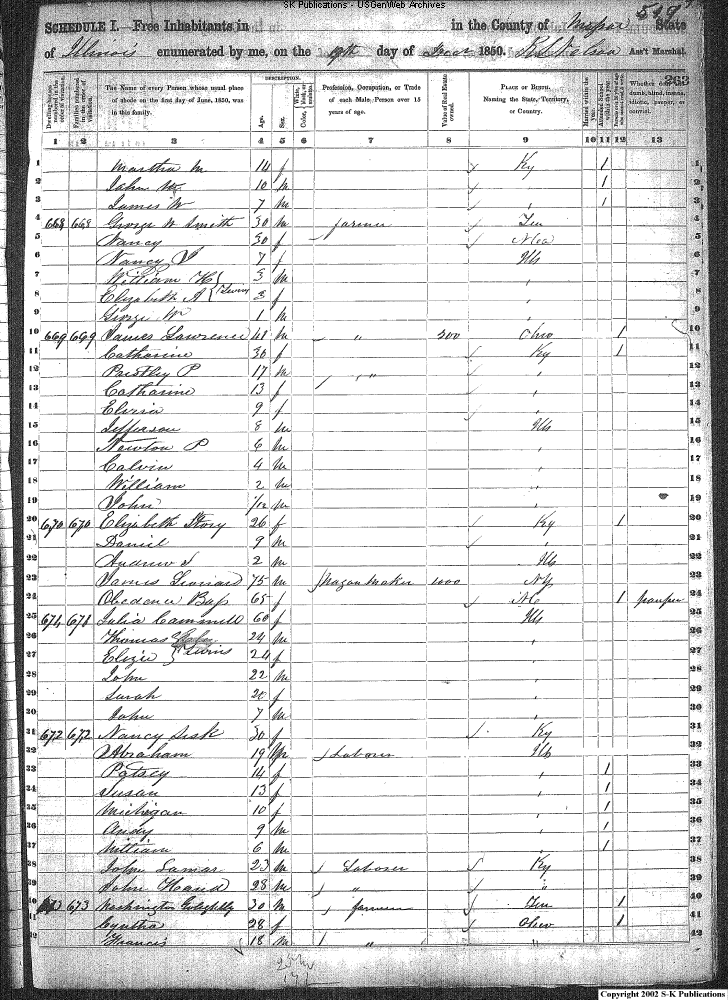 SK Publications - USGenWeb Archives
519
SCHEDULE I.—Free Inhabitants in in the County of State
of Illinois enumerated by me, on the 19th day of 1850. Ass't Marshal.
263
DESCRIPTION.
Dwelling-houses numbered in the order of visitation.
Families numbered in the order of visitation.
The Name of every Person whose usual place of abode on the first day of June, 1850, was in this family.
Age.
Sex.
White, Color, black, or mulatto.
Profession, Occupation, or Trade of each Male Person over 15 years of age.
Value of Real Estate owned.
PLACE OF BIRTH. Naming the State, Territory, or Country.
Married within the year.
Attended School within the year.
Whether deaf and dumb, blind, insane, idiotic, pauper, or convict.
1 2 3 4 5 6 7 8 9 10 11 12 13
1 Martha M 14 f Ky 1 1
2 John W 10 m 1 2
3 James W 7 m 1 3
4 668 668 George W Smith 30 m farmer Ten 4
5 Nancy 30 f 5
6 Nancy J 7 f Ills 6
7 William H 3 m 7
8 Elizabeth A Twins 3 f 8
9 George W 1 m 9
10 669 669 James Lawrence 41 m " 200 Ohio 1 10
11 Catharine 30 f Ky 1 11
12 P 17 m " 12
13 Catharine 13 f 13
14 Elvira 9 f 14
15 Jefferson 8 m Ills 15
16 Newton P 6 m 16
17 Calvin 4 m 17
18 William 2 m 18
19 John 1/12 m 19
20 670 670 Elizabeth Story 26 f Ky 1 20
21 Daniel 9 m 21
22 Andrew J 2 m Ills 22
23 James Leonard 75 m Wagon Maker 1000 23
24 Obedence Bass 65 f NC 1 pauper 24
25 671 671 Julia Cammell 60 f Ills 25
26 Thomas 24 m 26
27 Eliza twins 24 f 27
28 John 22 m 28
29 Sarah 20 f 29
30 John 7 m 30
31 672 672 Nancy Sisk 30 f Ky 31
32 Abraham 19 m Laborer Ills 32
33 Patsey 14 f 1 33
34 Susan 13 f 1 34
35 Michigan 10 f 1 35
36 Andy 9 m 1 36
37 William 6 m 1 37
38 John Lamar 23 m Laborer Ky 38
39 John Hand 28 m " " 39
40 673 673 Washington 30 m farmer Ten 1 40
41 Cyntha 28 f Ohio 1 41
42 Francis 18 m " " 42
Copyright 2002 S-K Publications